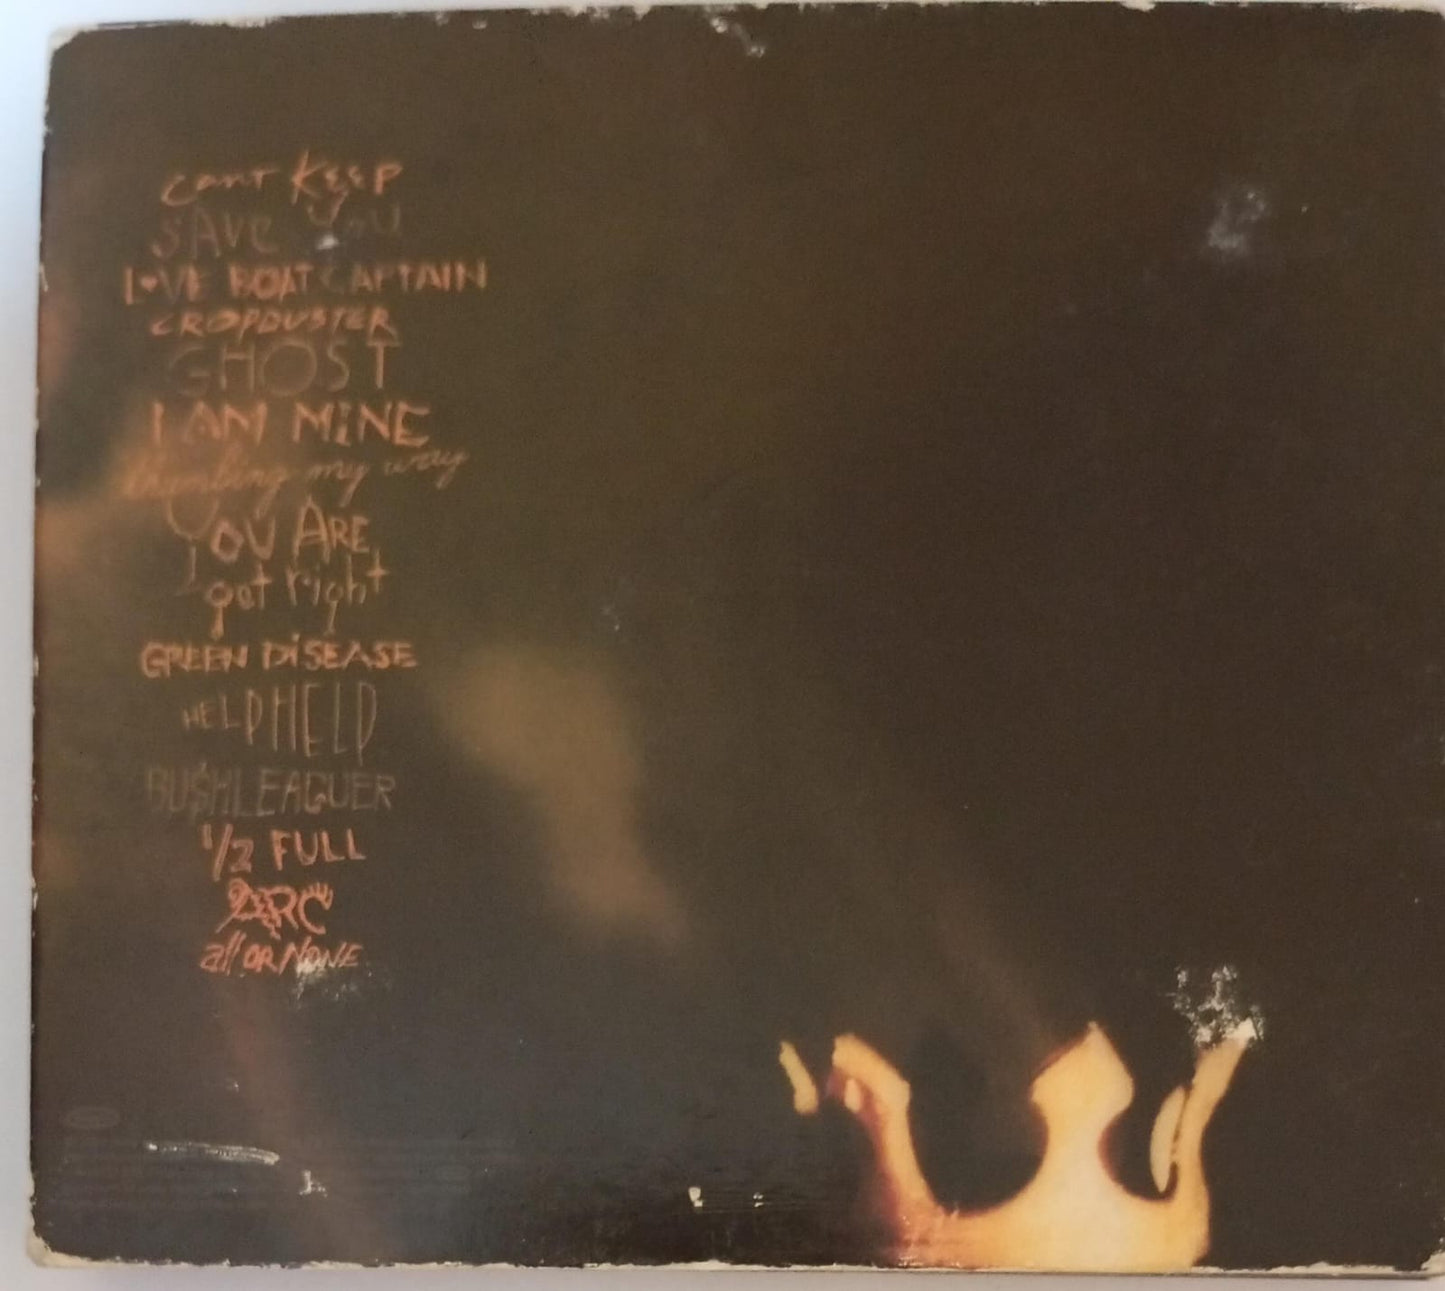 cant KEEP
SAVE YOU
LOVE BOAT CAPTAIN
CROPDUSTER
GHOST
I AM MiNE
thumbing my way
YOU ARE
get right
GREEN DiSEASE
HELPHELP
BU$HLEAGUER
1/2 FULL
ARC
all OR NONE